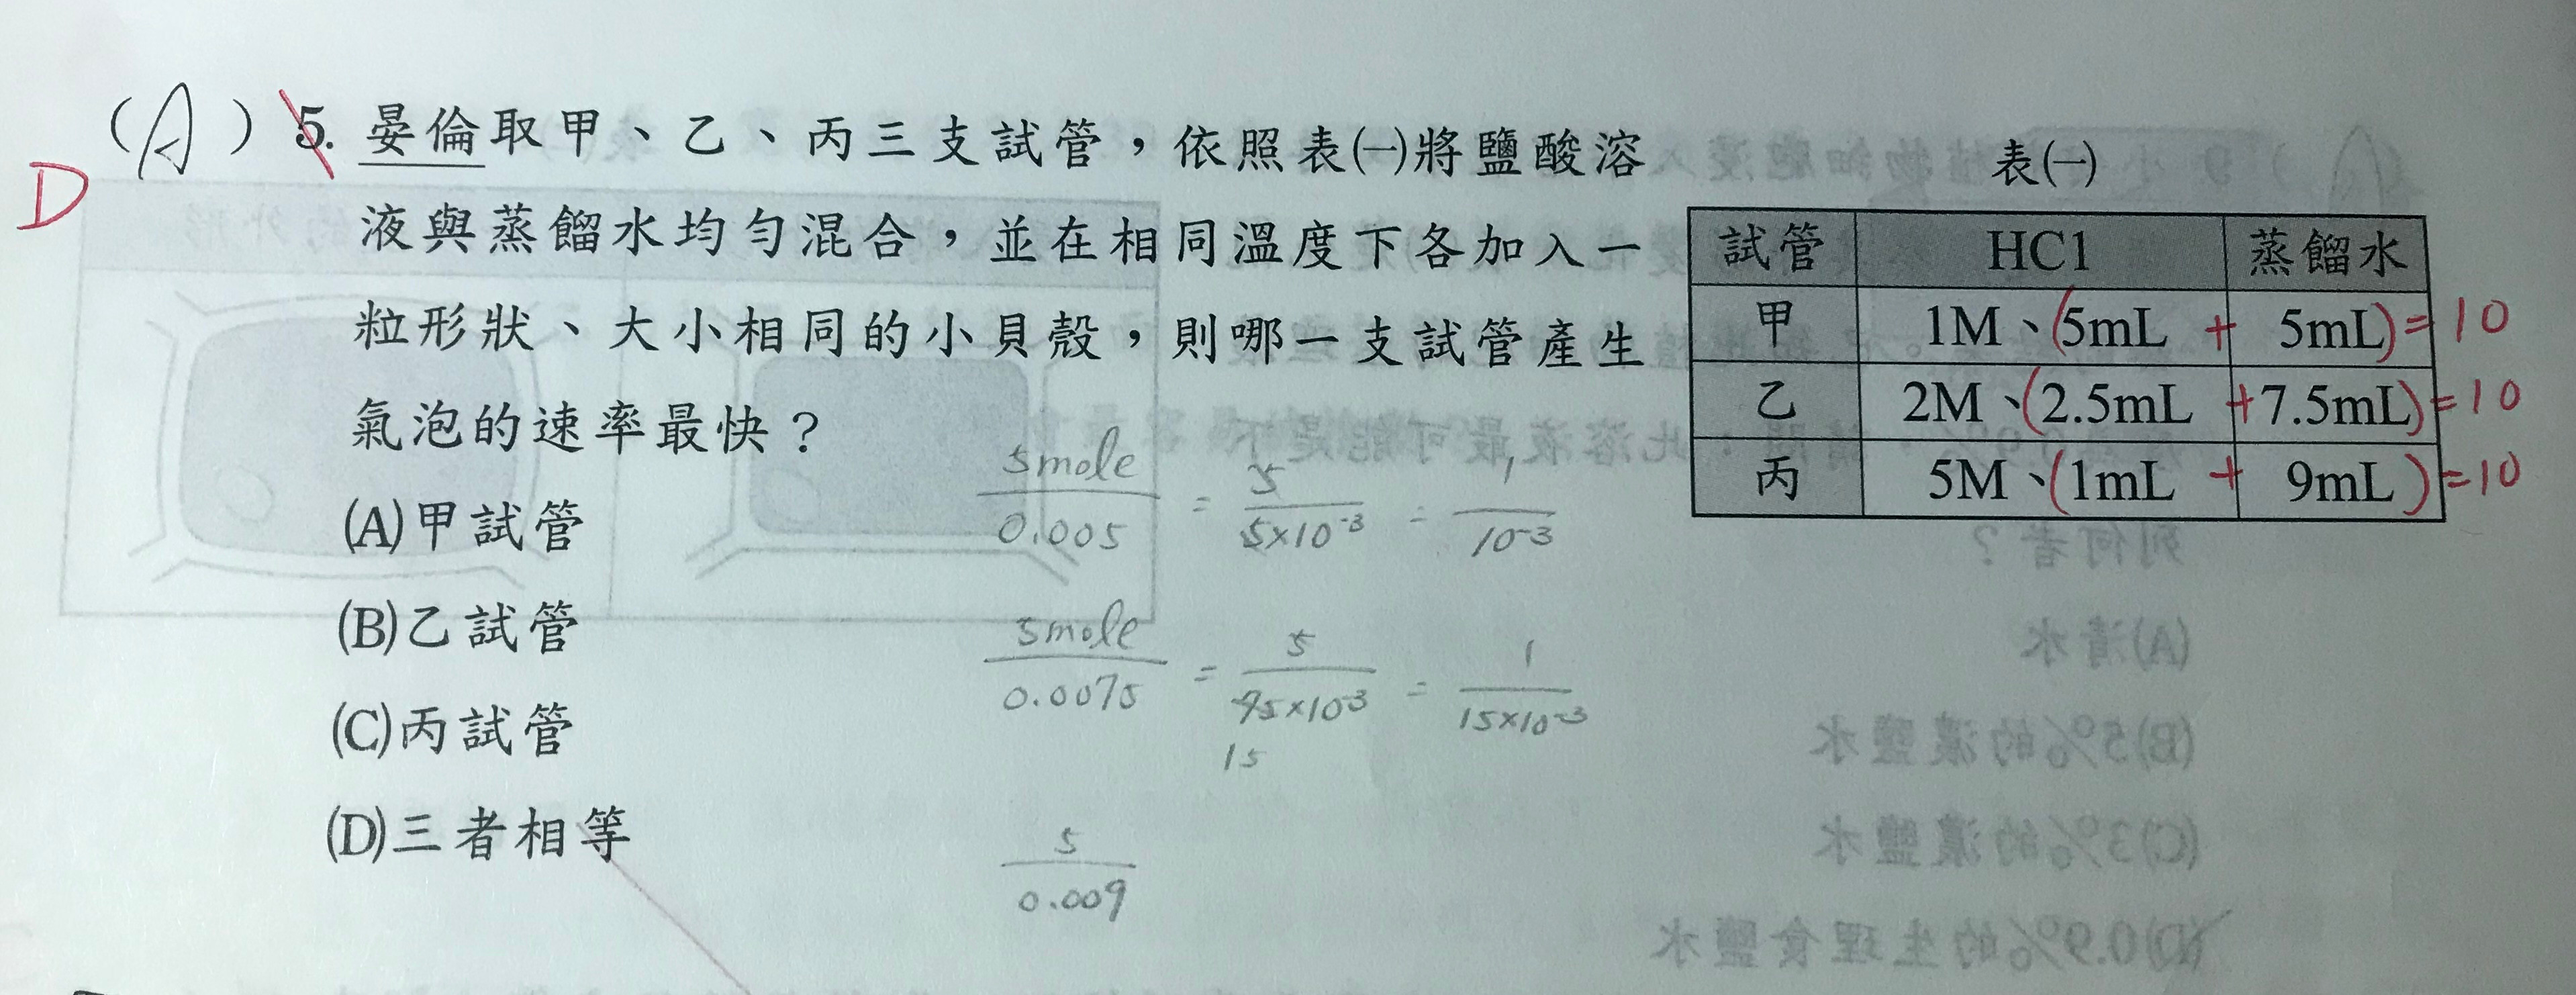 (A) 5. 晏倫取甲、乙、丙三支試管，依照表㈠將鹽酸溶
D
液與蒸餾水均勻混合，並在相同溫度下各加入一
粒形狀、大小相同的小貝殼，則哪一支試管產生
氣泡的速率最快？
(A)甲試管
(B)乙試管
(C)丙試管
(D)三者相等
表㈠
試管 HCl 蒸餾水
甲 1M、(5mL + 5mL)=10
乙 2M、(2.5mL +7.5mL)=10
丙 5M、(1mL + 9mL)=10
5mole/0.005 = 5/5×10⁻³ = 1/10⁻³
5mole/0.0075 = 5/75×10⁻³ = 1/15×10⁻³
15
5/0.009
列何者？
(A)清水
(B)5%的濃鹽水
(C)3%的濃鹽水
(D)0.9%的生理食鹽水